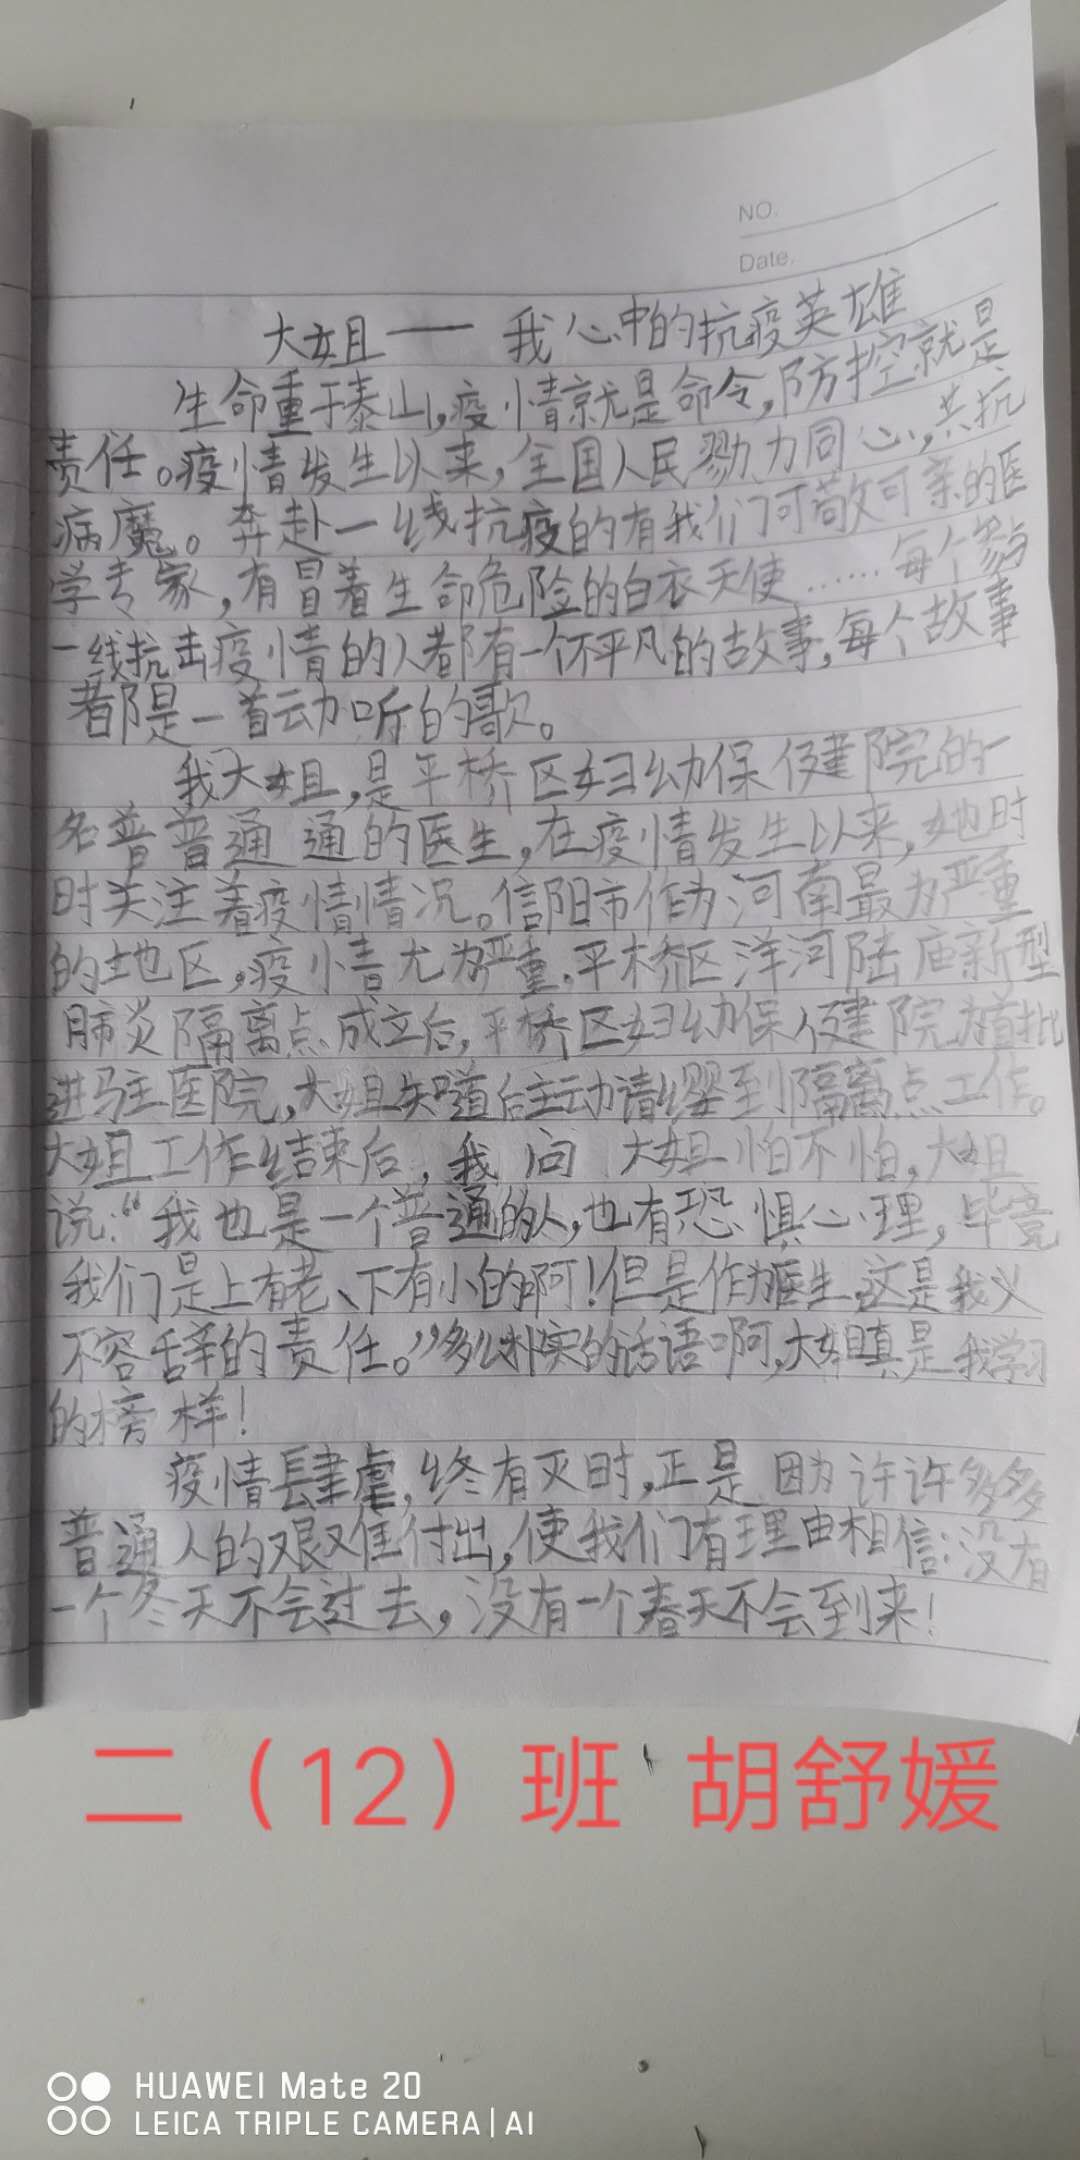 NO.
Date.
大姐——我心中的抗疫英雄
生命重于泰山,疫情就是命令,防控就是
责任。疫情发生以来,全国人民勠力同心,共抗
病魔。奔赴一线抗疫的有我们可敬可亲的医
学专家,有冒着生命危险的白衣天使……每个参与
一线抗击疫情的人都有一个不平凡的故事,每个故事
都是一首动听的歌。
我大姐,是平桥区妇幼保健院的一
名普普通通的医生,在疫情发生以来,她时
时关注着疫情情况。信阳市作为河南最为严重
的地区,疫情尤为严重.平桥区洋河陆庙新型
肺炎隔离点成立后,平桥区妇幼保健院为首批
进驻医院,大姐知道后主动请缨到隔离点工作。
大姐工作结束后,我问大姐怕不怕,大姐
说:“我也是一个普通的人,也有恐惧心理,毕竟
我们是上有老、下有小的啊!但是作为医生,这是我义
不容辞的责任。”多么朴实的话语啊,大姐真是我学习
的榜样!
疫情肆虐,终有灭时,正是因为许许多多
普通人的艰难付出,使我们有理由相信:没有
一个冬天不会过去,没有一个春天不会到来!
二（12）班 胡舒媛
HUAWEI Mate 20
LEICA TRIPLE CAMERA|AI